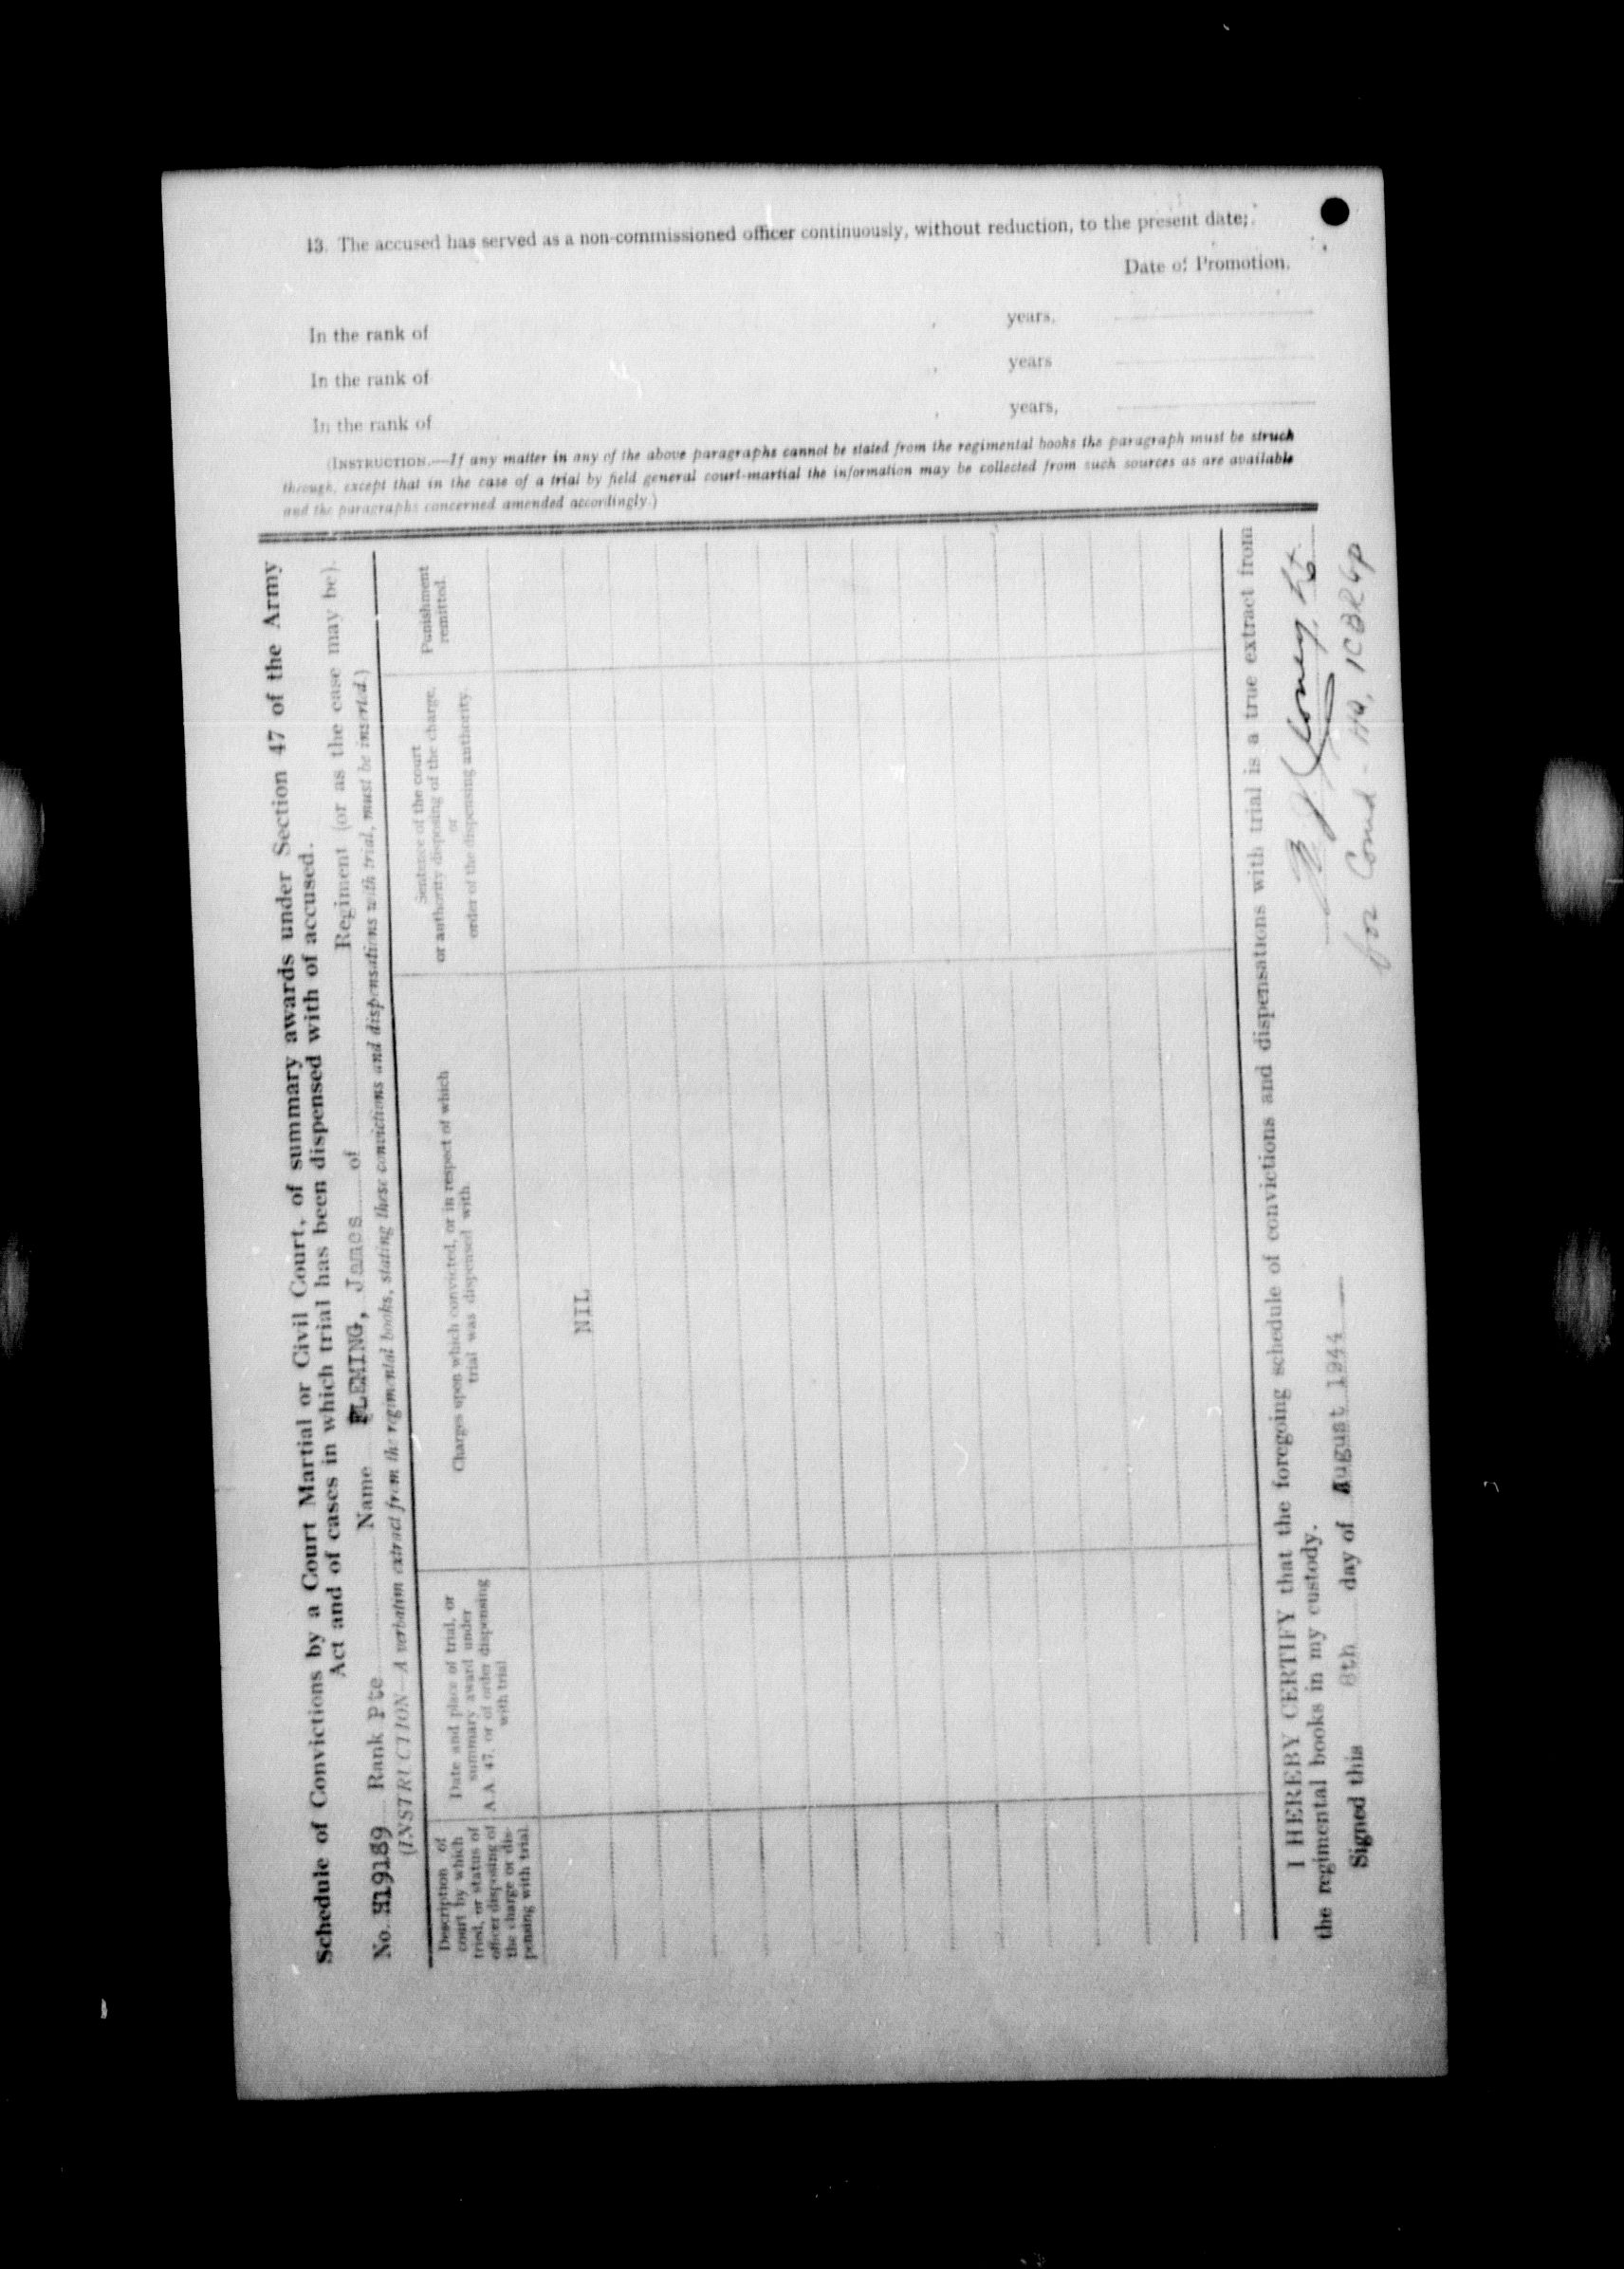 13. The accused has served as a non-commissioned officer continuously, without reduction, to the present date;
Date of Promotion.
In the rank of , years,
In the rank of , years
In the rank of , years,
(INSTRUCTION.—If any matter in any of the above paragraphs cannot be stated from the regimental books the paragraph must be struck
through, except that in the case of a trial by field general court-martial the information may be collected from such sources as are available
and the paragraphs concerned amended accordingly.)
Schedule of Convictions by a Court Martial or Civil Court, of summary awards under Section 47 of the Army
Act and of cases in which trial has been dispensed with of accused.
No. H19189 Rank Pte Name FLEMING, James of Regiment (or as the case may be).
(INSTRUCTION—A verbatim extract from the regimental books, stating these convictions and dispensations with trial, must be inserted.)
Description of
court by which
tried, or status of
officer disposing of
the charge or dis-
pensing with trial.
Date and place of trial, or
summary award under
A.A. 47, or of order dispensing
with trial
Charges upon which convicted, or in respect of which
trial was dispensed with.
Sentence of the court
or authority disposing of the charge,
or
order of the dispensing authority.
Punishment
remitted.
NIL
I HEREBY CERTIFY that the foregoing schedule of convictions and dispensations with trial is a true extract from
the regimental books in my custody.
Signed this 8th day of August 1944
Lt.
for Comd - HQ, 1CBRGp